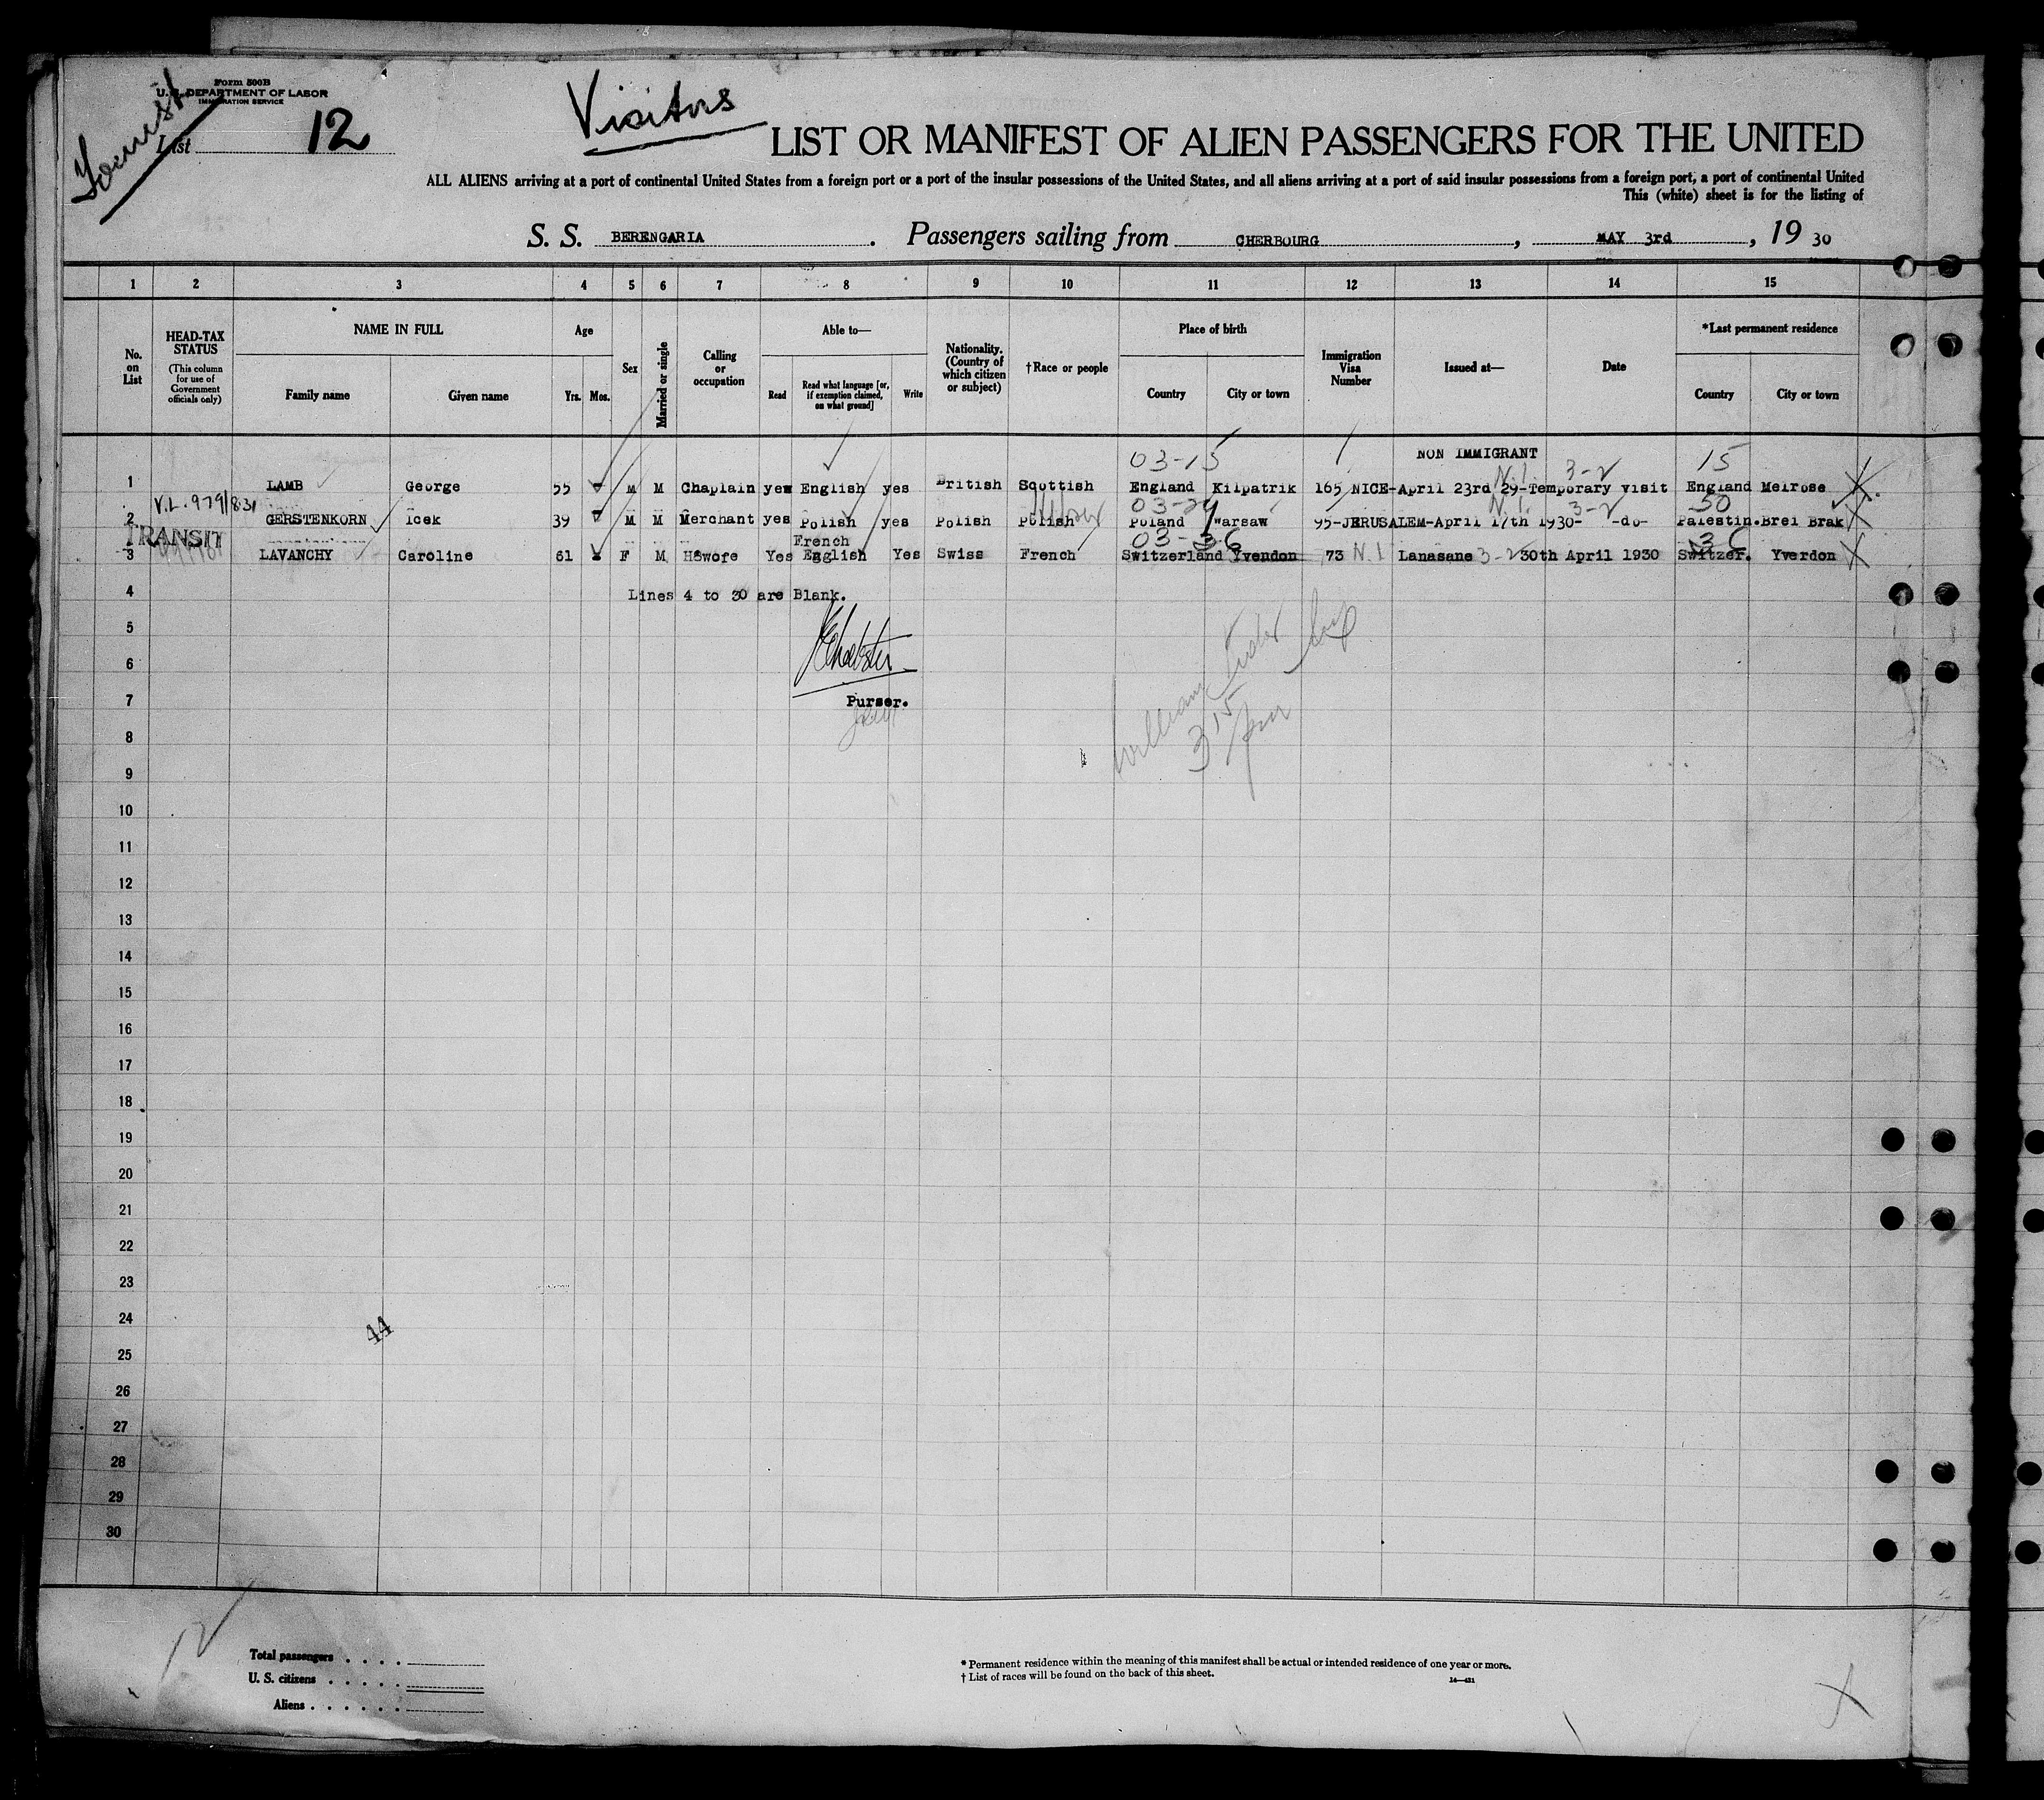 Form 500B
U. S. DEPARTMENT OF LABOR
IMMIGRATION SERVICE
Tourist
List 12
Visitors
LIST OR MANIFEST OF ALIEN PASSENGERS FOR THE UNITED
ALL ALIENS arriving at a port of continental United States from a foreign port or a port of the insular possessions of the United States, and all aliens arriving at a port of said insular possessions from a foreign port, a port of continental United
This (white) sheet is for the listing of
S. S. BERENGARIA. Passengers sailing from CHERBOURG, MAY 3rd, 19 30
1 2 3 4 5 6 7 8 9 10 11 12 13 14 15
No. on List
HEAD-TAX STATUS (This column for use of Government officials only)
NAME IN FULL
Family name Given name
Age
Yrs. Mos.
Sex
Married or single
Calling or occupation
Able to—
Read Read what language [or, if exemption claimed, on what ground] Write
Nationality. (Country of which citizen or subject)
†Race or people
Place of birth
Country City or town
Immigration Visa Number
Issued at—
Date
*Last permanent residence
Country City or town
NON IMMIGRANT
03-15 N.I. 3-2 15
1 LAMB George 55 M M Chaplain yes English yes British Scottish England Kilpatrik 165 NICE-April 23rd 29-Temporary visit England Melrose
V.L. 979/831 03-24 N.I. 3-2 50
2 GERSTENKORN Icek 39 M M Merchant yes Polish yes Polish Polish Poland Warsaw 95-JERUSALEM-April 17th 1930- -do- Palestin. Brei Brak
TRANSIT French 03-36 36
3 LAVANCHY Caroline 61 F M Hswofe Yes Egglish Yes Swiss French Switzerland Yvendon 73 N.I Lanasane 3-2 30th April 1930 Switzer. Yverdon
4 Lines 4 to 30 are Blank.
5
6
7 Purser.
William
3 15
8
9
10
11
12
13
14
15
16
17
18
19
20
21
22
23
24
44
25
26
27
28
29
30
12
Total passengers . . . .
U. S. citizens . . . . .
Aliens . . . . . .
* Permanent residence within the meaning of this manifest shall be actual or intended residence of one year or more.
† List of races will be found on the back of this sheet.
14—421